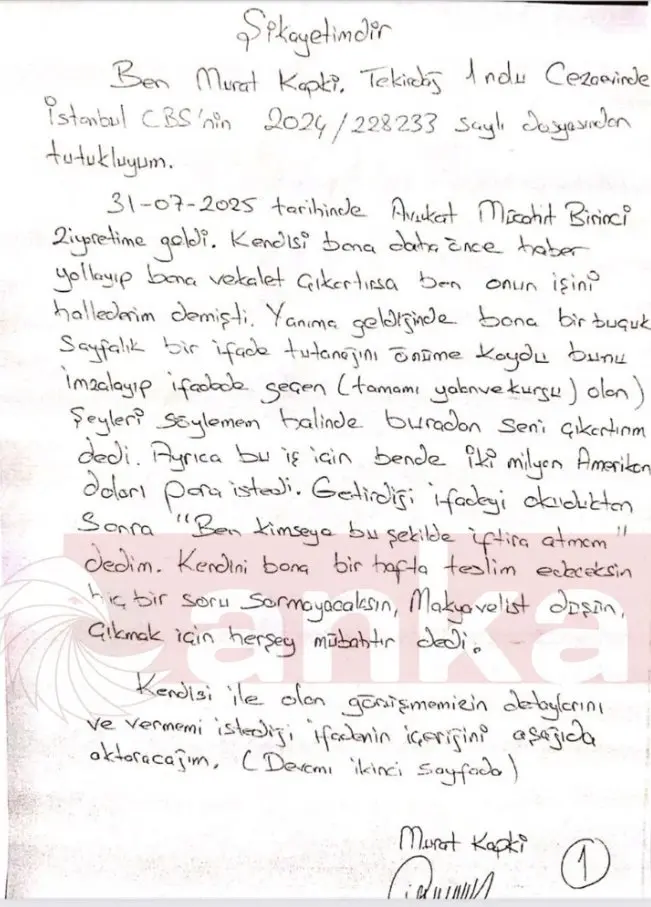 Şikayetimdir
Ben Murat Kapki. Tekirdağ 1 nolu Cezaevinde
İstanbul CBS'nin 2024/228233 sayılı dosyasından
tutukluyum.
31-07-2025 tarihinde Avukat Mücahit Birinci
Ziyaretime geldi. Kendisi bana daha önce haber
yollayıp bana vekalet çıkartırsa ben onun işini
hallederim demişti. Yanıma geldiğinde bana bir buçuk
Sayfalık bir ifade tutanağını önüme koydu bunu
imzalayıp ifadede geçen (tamamı yalan ve kurgu) olan)
Şeyleri söylemem halinde buradan seni çıkartırım
dedi. Ayrıca bu iş için bende iki milyon Amerikan
doları para istedi. Getirdiği ifadeyi okuduktan
Sonra "Ben kimseye bu şekilde iftira atmam"
dedim. Kendini bana bir hafta teslim edeceksin
hiç bir soru sormayacaksın, Makyavelist düşün,
Çıkmak için herşey mübahtır dedi.
Kendisi ile olan görüşmemizin detaylarını
ve vermemi istediği ifadenin içeriğini aşağıda
aktaracağım. (Devamı ikinci sayfada)
anka
Murat Kapki
1